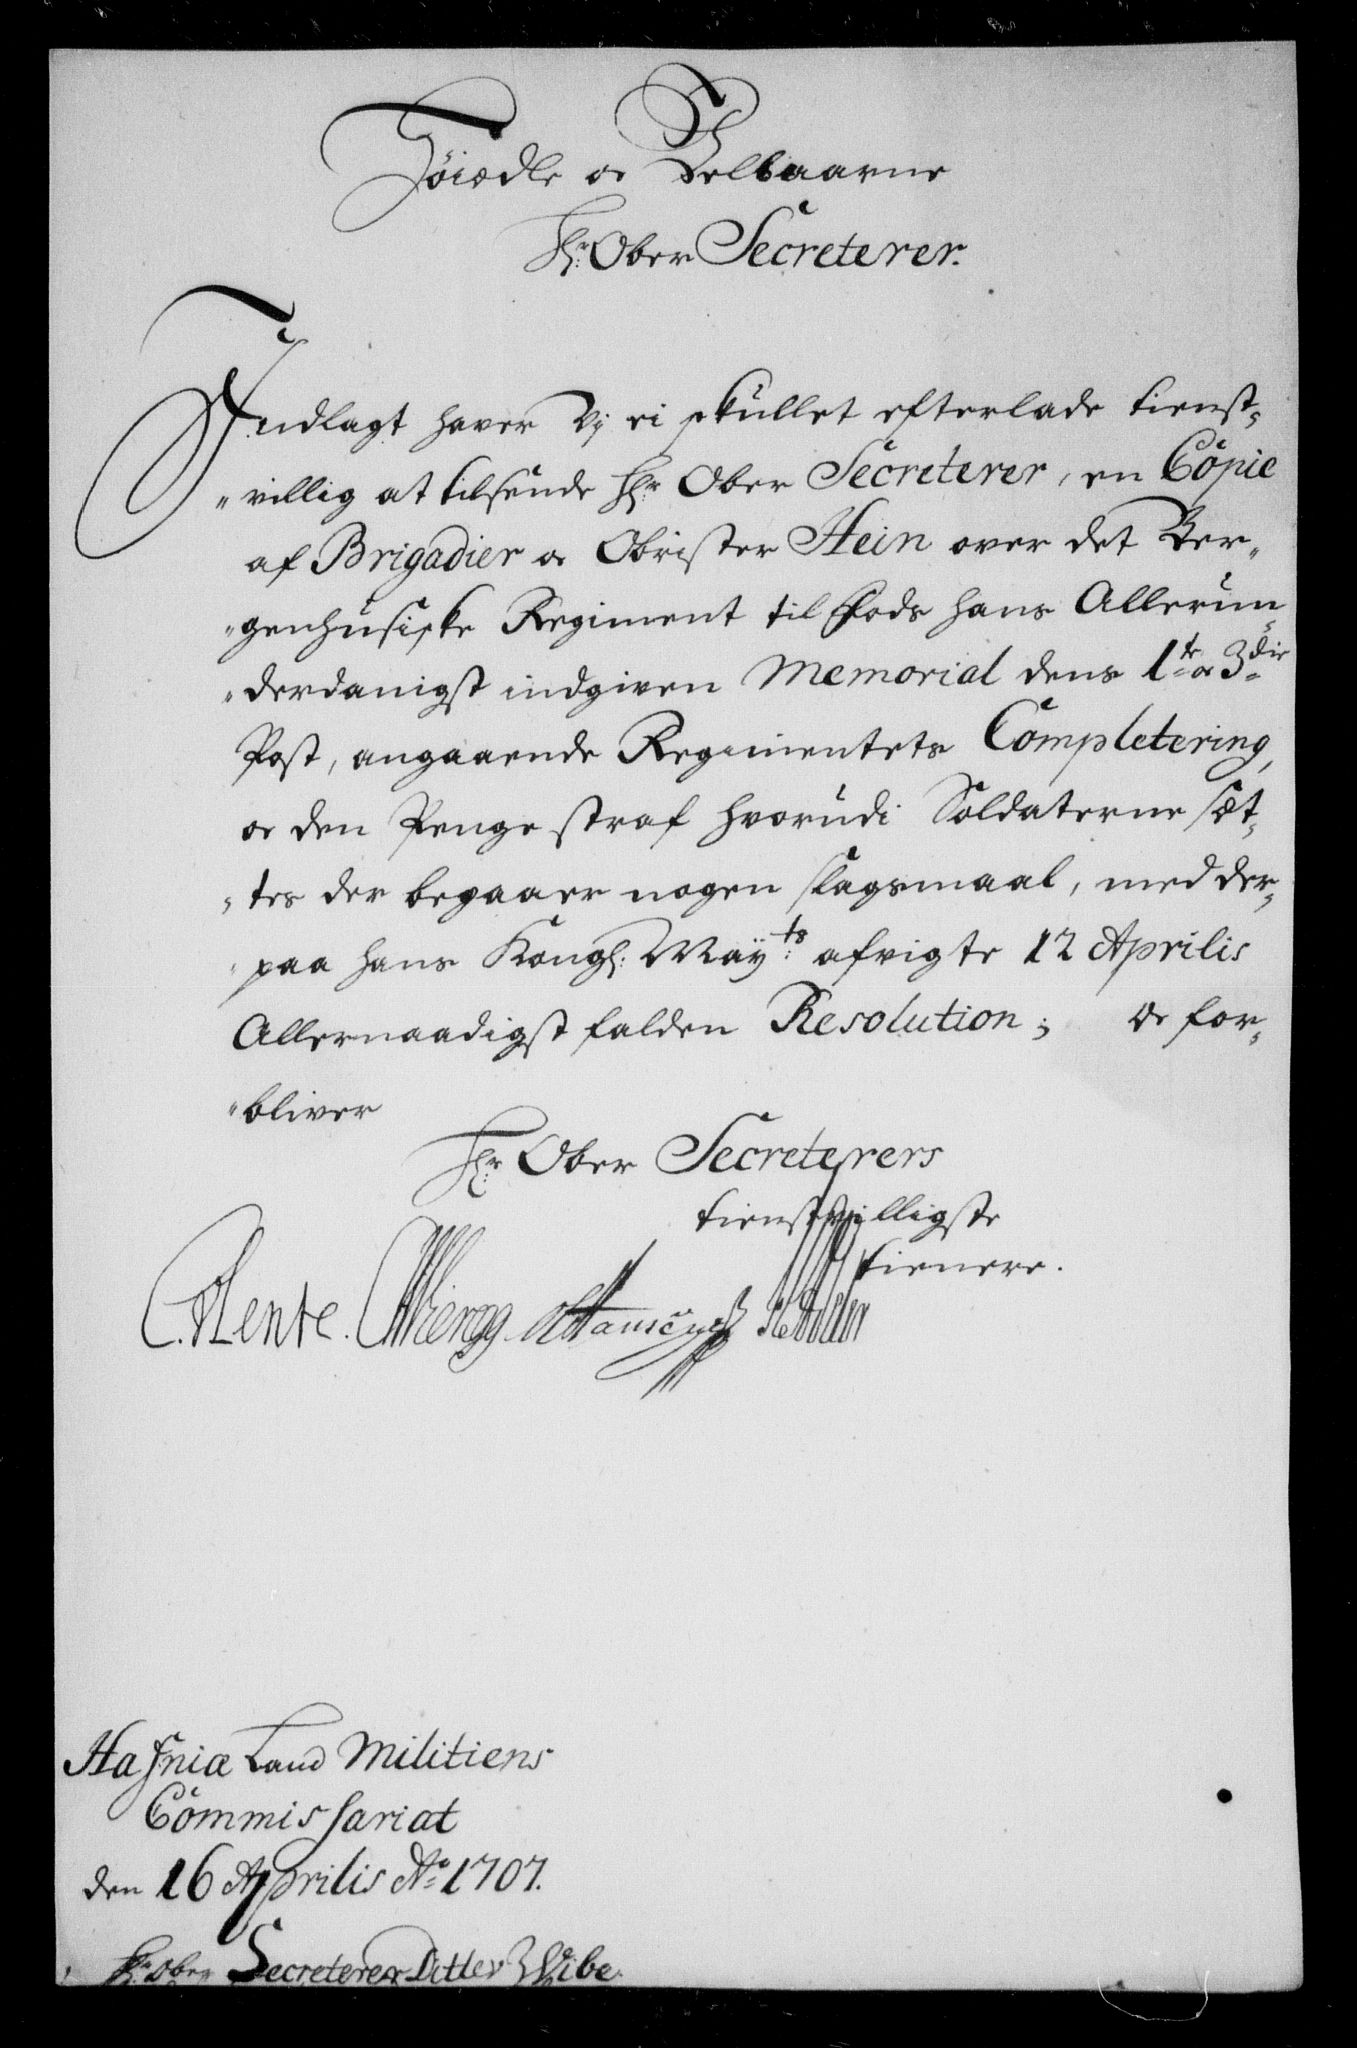 Høiædle oc Velbaarne
Hr: Ober Secreterer.
Indlagt haver Vj ei skullet efterlade tienst„
„villig at tilsende Hr: Ober Secreterer, en Copie
af Brigadier oc Obrister Hein over det Ber„
„genhusiske Regiment til Fods hans Allerun„
„derdanigst indgiven Memorial dens 1te oc 3die
Post, angaaende Regimentets Completering,
oc den Penge straf hvorudi Soldaterne sæt„
„tes der begaaer nogen slagsmaal, med der„
„paa hans Kongl: Mayts: afvigte 12 Aprilis
Allernaadigst falden Resolution; Oc for„
„bliver
Hr: Ober Secreterers
tienstvilligste
tienere.
C. Lente.
Hafniæ Land Militiens
Commissariat
den 16 Aprilis Ao 1707.
Hr: Ober Secreterer Ditlev Wibe.